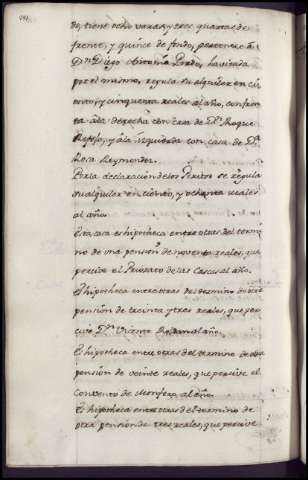 do, tiene ocho varas y tres quartas de
frente, y quince de fondo, pertenece á
Dn Diego Antonio Pardo, havitada
por el mismo, regula su alquiler en ci
ento, y cinquenta reales al año, confron
ta a la derecha con casa de Dn Roque
y á la izquierda con casa de Da
Rosa Reymondez.
Por la declaración de los Peritos se regula
su alquiler en ciento, y ochenta reales
al año.
Esta casa es hipotheca entre otras del termi
no de una pension de noventa reales, que
percive el Priorato de las Cascas al año.
Es hipotheca entre otras del termino de otra
pensión de treinta y tres reales, que per
cive Dn Vicente al año.
Es hipotheca entre otras del termino de otra
pensión de veinte reales, que percive el
Convento de Monfero al año.
Es hipotheca entre otras del termino de
otra pensión de tres reales, que percive